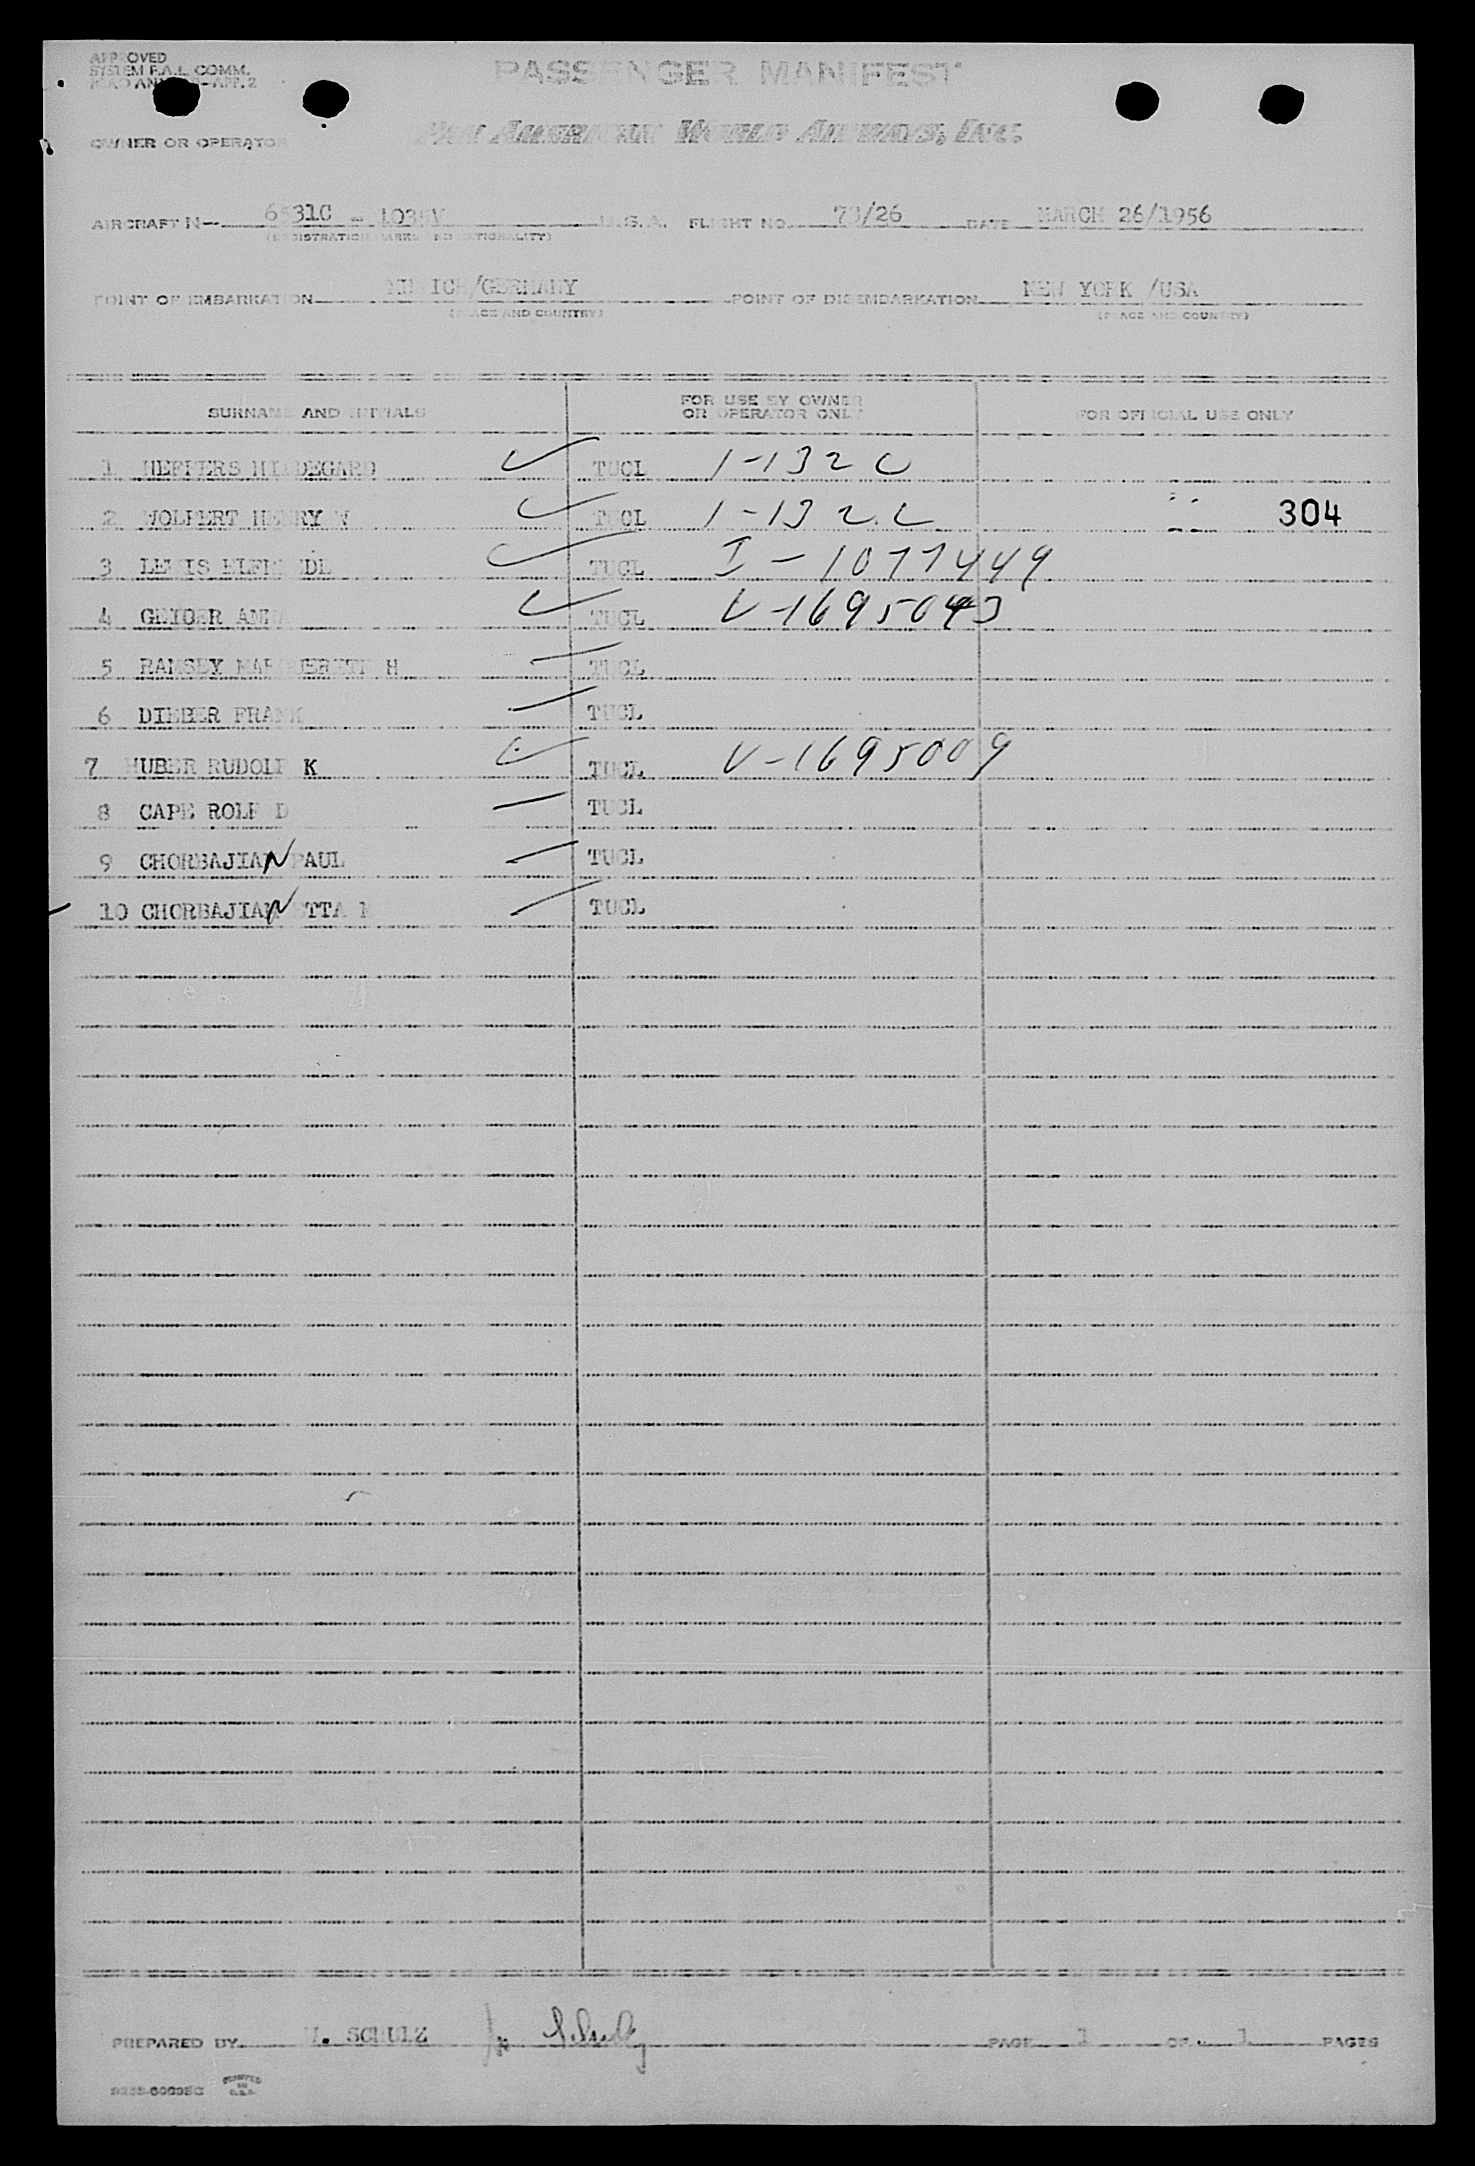 APPROVED
SYSTEM F.A.L. COMM.
PASSENGER MANIFEST
OWNER OR OPERATOR
PAN AMERICAN WORLD AIRWAYS, INC.
AIRCRAFT N- 6531C - 1035V U.S.A. FLIGHT NO. DATE MARCH 26/1956
(REGISTRATION MARKS AND NATIONALITY)
POINT OF EMBARKATION MUNICH/GERMANY POINT OF DISEMBARKATION NEW YORK /USA
(PLACE AND COUNTRY) (PLACE AND COUNTRY)
SURNAME AND INITIALS FOR USE BY OWNER OR OPERATOR ONLY FOR OFFICIAL USE ONLY
1 HEFFERS HILDEGARD TUCL I-132 C
2 WOLPERT HENRY W TUCL I-132 C 304
3 LEWIS ELFRIEDE TUCL I-1077449
4 GEIGER ANNA TUCL V-1695043
5 RAMSEY MARGUERITE H TUCL
6 DIEBER FRANK TUCL
7 HUBER RUDOLF K TUCL V-1695009
8 CAPE ROLF D TUCL
9 CHORBAJIAN PAUL TUCL
10 CHORBAJIAN ETTA TUCL
PREPARED BY SCHULZ PAGE 1 OF 1 PAGES
PRINTED IN U.S.A.